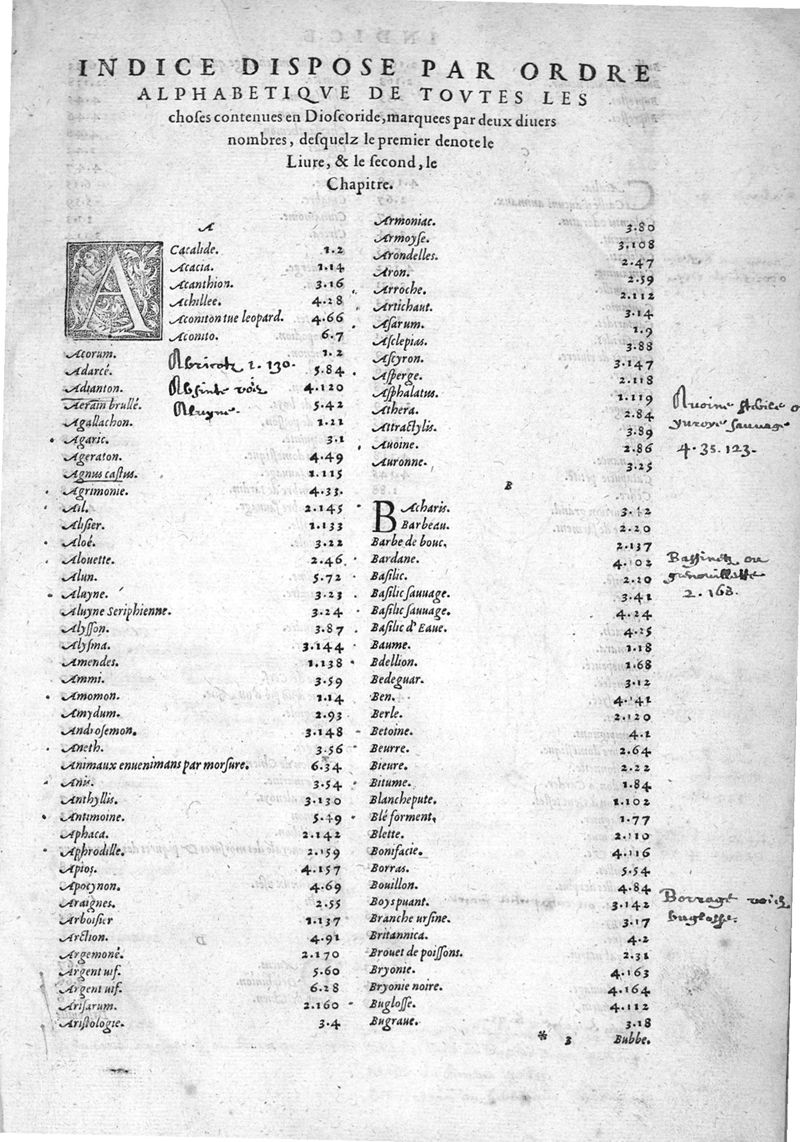 INDICE DISPOSE PAR ORDRE
ALPHABETIQVE DE TOVTES LES
choses contenues en Dioscoride, marquees par deux diuers
nombres, desquelz le premier denote le
Liure, & le second, le
Chapitre.
A
ACacalide. 1.2
Acacia. 1.14
Acanthion. 3.16
Achillee. 4.28
Aconiton tue leopard. 4.66
Aconito. 6.7
Acorum. 1.2
Abricotz 1. 130.
Adarcé. 5.84
Adianton. 4.120
Absinte voir
Aluyne.
Aerain brullé. 5.42
Agallachon. 1.21
Agaric. 3.1
Ageraton. 4.49
Agnus castus. 1.115
Agrimonie. 4.33
Ail. 2.145
Alisier. 1.133
Aloé. 3.22
Alouette. 2.46
Alun. 5.72
Aluyne. 3.23
Aluyne Seriphienne. 3.24
Alysson. 3.87
Alysma. 3.144
Amendes. 1.138
Ammi. 3.59
Amomon. 1.14
Amydum. 2.93
Androsemon. 3.148
Aneth. 3.56
Animaux enuenimans par morsure. 6.34
Anis. 3.54
Anthyllis. 3.130
Antimoine. 5.49
Aphaca. 2.142
Aphrodille. 2.159
Apios. 4.157
Apocynon. 4.69
Araignes. 2.55
Arboisier 1.137
Arction. 4.91
Argemoné. 2.170
Argent uif. 5.60
Argent uif. 6.28
Arisarum. 2.160
Aristologie. 3.4
Armoniac. 3.80
Armoyse. 3.108
Arondelles. 2.47
Aron. 2.59
Arroche. 2.112
Artichaut. 3.14
Asarum. 1.9
Asclepias. 3.88
Ascyron. 3.147
Asperge. 2.118
Asphalatus. 1.119
Athera. 2.84
Attractylis. 3.89
Auoine. 2.86
Auronne. 3.25
Auoine stérile ou
yuroye sauuage
4. 35. 123.
B
BAcharis. 3.42
Barbeau. 2.20
Barbe de bouc. 2.137
Bardane. 4.102
Basilic. 2.20
Basilic sauuage. 3.41
Basilic sauuage. 4.24
Basilic d'Eaue. 4.25
Baume. 1.18
Bdellion. 1.68
Bedeguar. 3.12
Ben. 4.141
Berle. 2.120
Betoine. 4.1
Beurre. 2.64
Bieure. 2.22
Bitume. 1.84
Blanchepute. 1.102
Blé forment. 1.77
Blette. 2.110
Bonifacie. 4.116
Borras. 5.54
Bouillon. 4.84
Boyspuant. 3.142
Branche ursine. 3.17
Britannica. 4.2
Brouet de poissons. 2.31
Bryonie. 4.163
Bryonie noire. 4.164
Buglosse. 4.112
Bugraue. 3.18
Bassinetz ou
grenouillette
2. 168.
Borrage voiez
buglosse.
* B Bubbe.